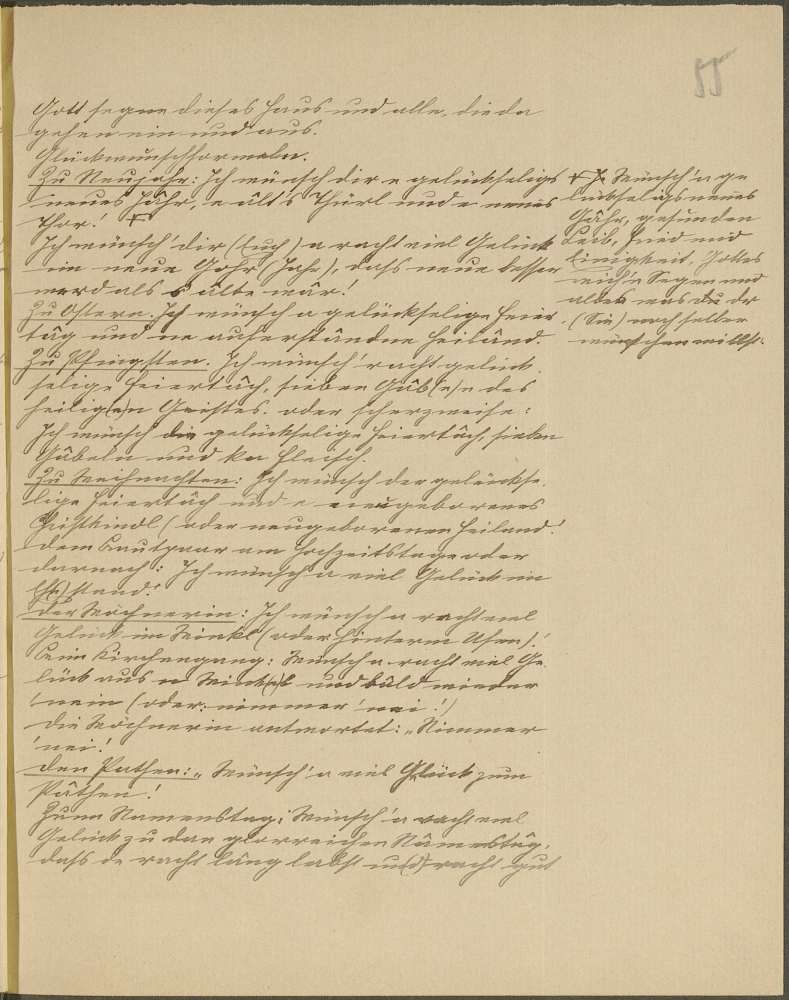 55
Gott segne dieses Haus und alle, die da
gehen ein und aus.
Glückwunschformeln.
Zu Neujahr: Ich wünsch dir e gelückseligs
neues Jåhr, e ålt's Thürl und e neues
Thor! +
Ich wünsch' dir (Euch) a racht viel Gelück
im neue Johr (Jahr), dass neue besser
werd als s ålte wår!
Zu Ostern. Ich wünsch a gelückselige Feier
tåg und ne auferståndne Heilånd.
Zu Pfingsten. Ich wünsch' racht gelück
selige Feiertåch, sieben Gåb(e)n des
heilig(e)n Geistes. oder scherzweise:
Ich wünsch die gelückselige Feiertåch, sieben
Gåbeln und ka Fleisch.
Zu Weihnachten: Ich wünsch der gelückse
lige Feiertåch und e neugeborenes
Christkindl (oder neugeborenen Heiland!
Dem Brautpaar am Hochzeitstage oder
darnach: Ich wünsch a viel Gelück im
Eh(e)stand!
Der Wöchnerin: Ich wünsch a racht viel
Gelück im Winkl (oder hinterm Ofen)!
Beim Kirchengang: Wünsch a racht viel Ge
lück aus n Wink(e)l und båld wieder
'nein (oder: nimmer 'nei!)
Die Wöchnerin antwortet: „Nimmer
'nei!
Den Pathen: „Wünsch' a viel Glück zum
Påthen!
Zum Namenstag: Wünsch' a racht viel
Gelück zu dan glorreichen Nåmenståg,
dass de racht lång labst un(d) racht gut
+ Wünsch' a ge
lückseligs neues
Jåhr, gesunden
Leib, Fried und
Einigkeit, Gottes
reich'n Segen und
alles was du dr
(Sie) noch selber
wünschen willst.